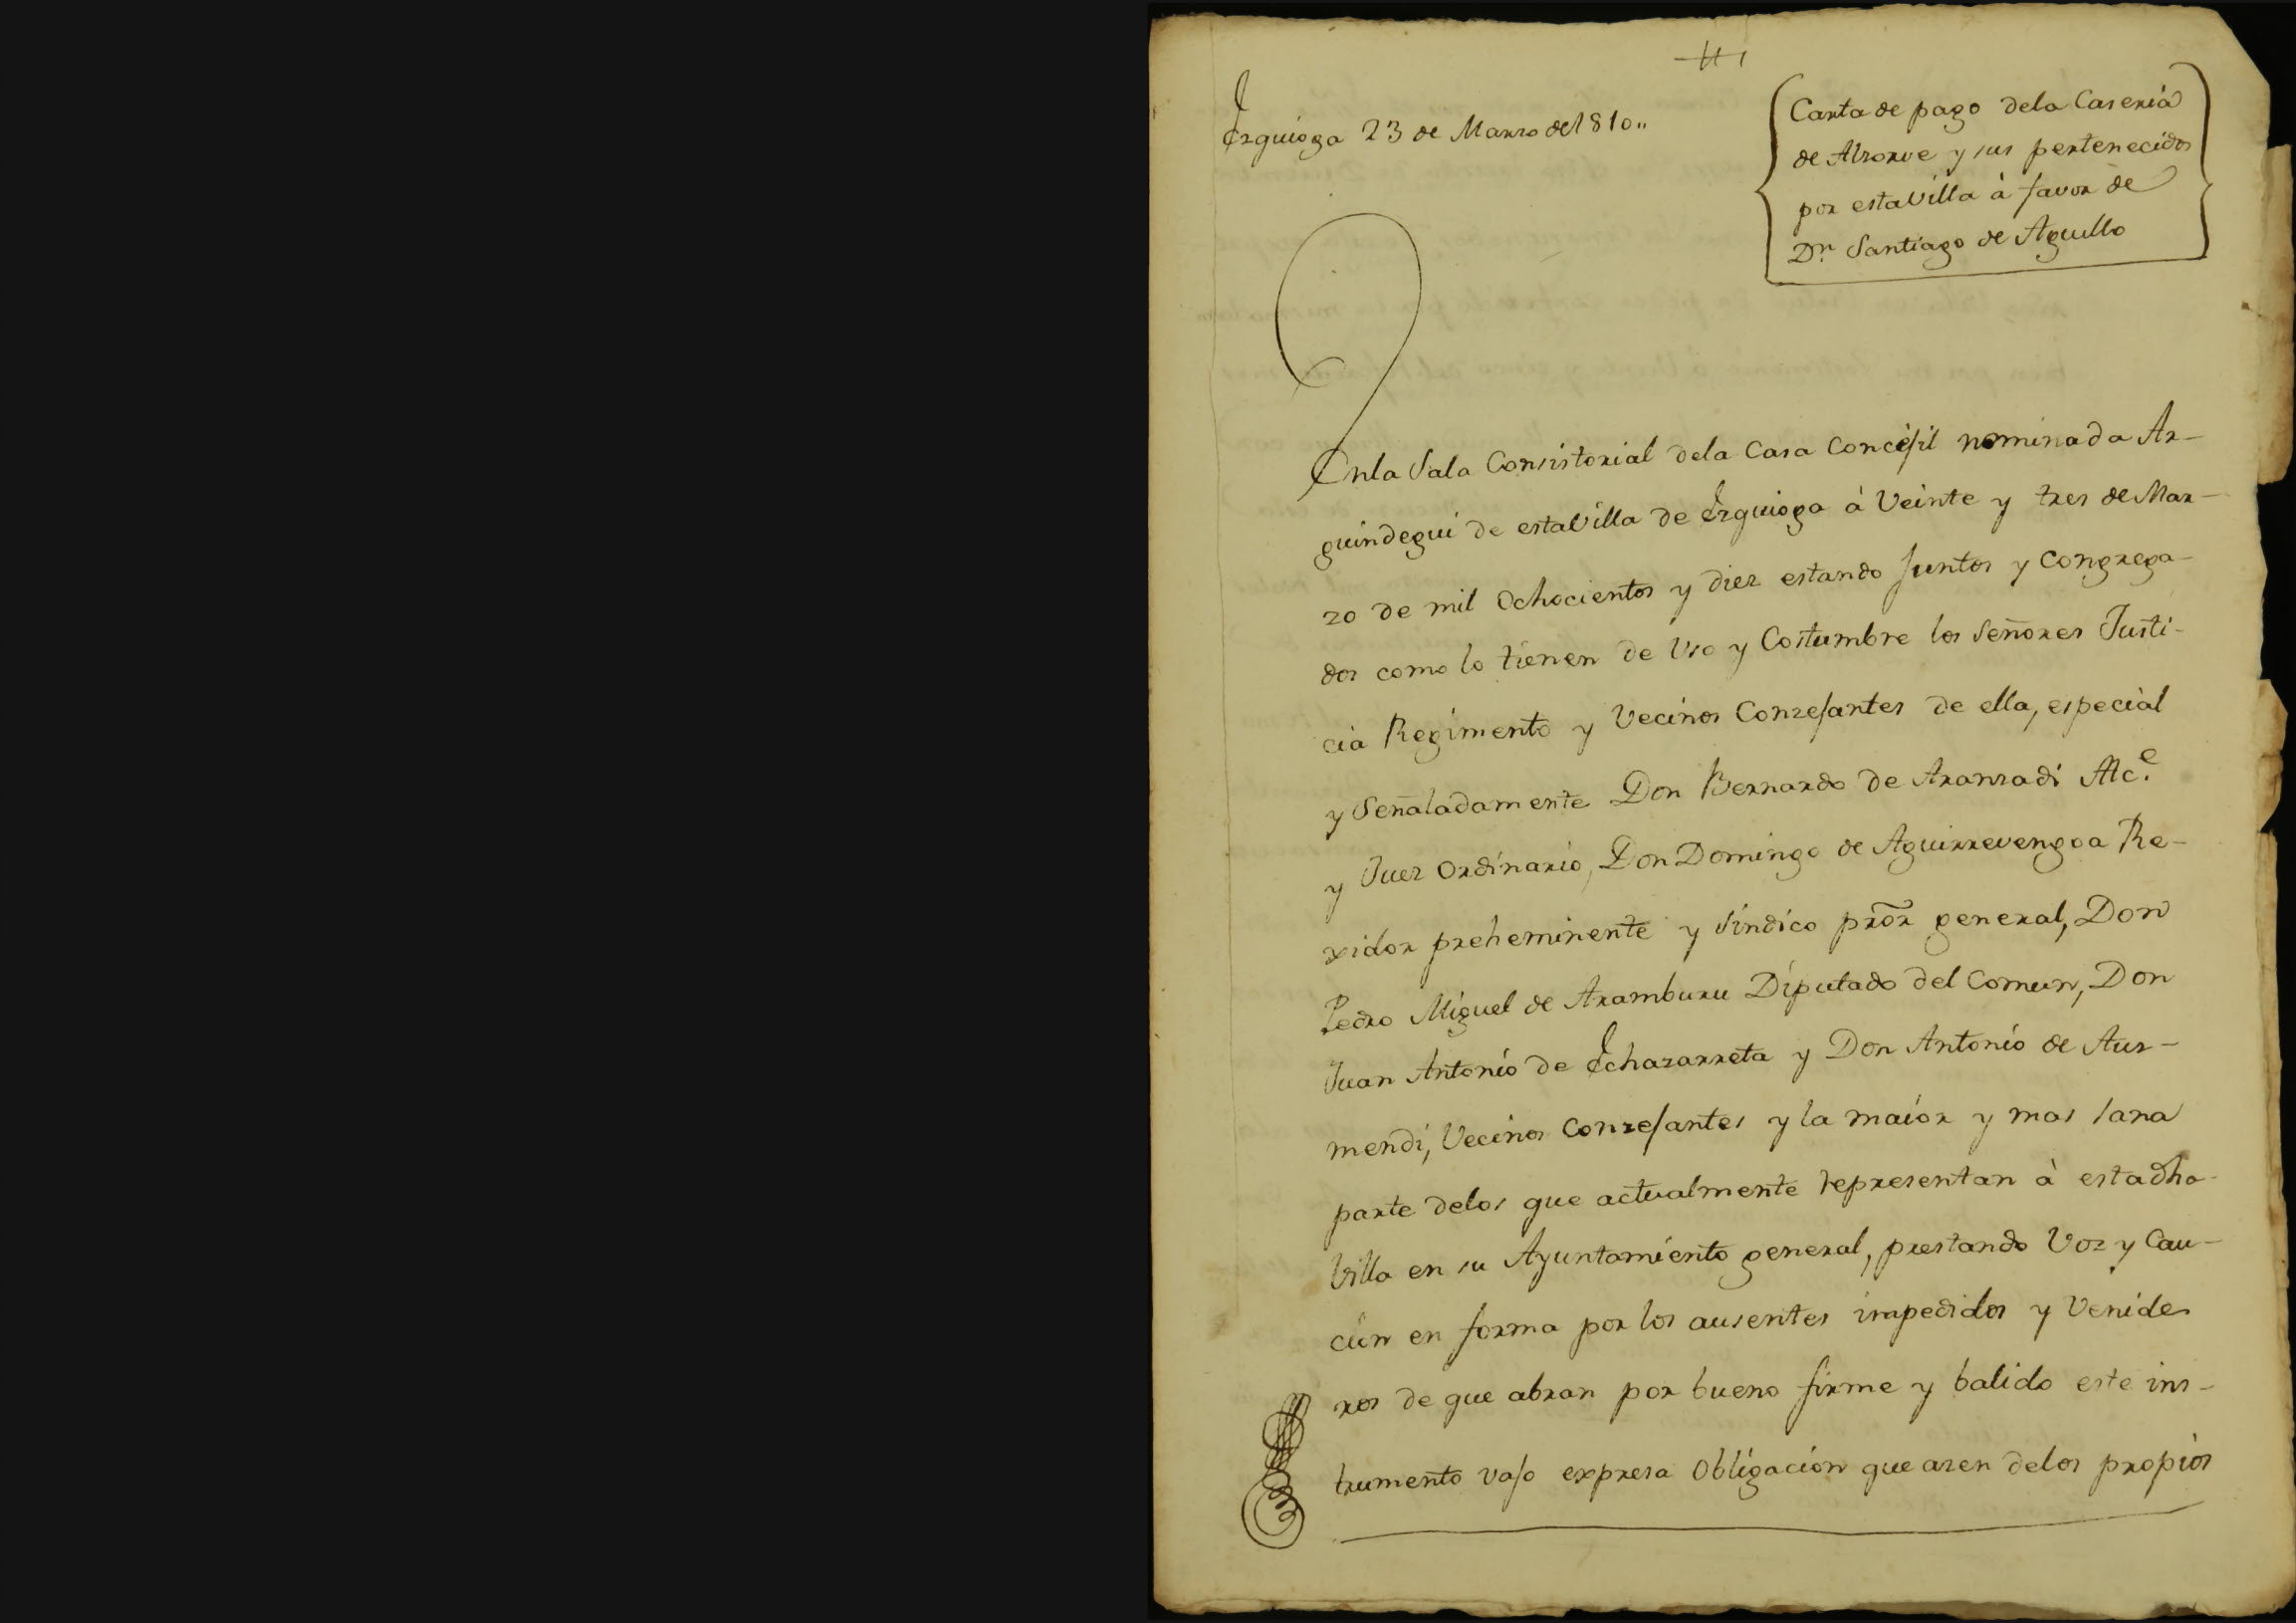 Ezquioga 23 de Marzo de 1810,,
Carta de pago dela Caseria
de Alzorve y sus pertenecidos
por esta Villa à favor de
Dn. Santiago de Agullo
Enla Sala Consistorial dela Casa Concejil nominada Ar-
guindegui de esta Villa de Ezquioga à Veinte y tres de Mar-
zo de mil Ochocientos y diez estando Juntos y Congrega-
dos como lo tienen de Uso y Costumbre los Señores Justi-
cia Regimento y Vecinos Conzejantes de ella, especial
y Señaladamente Don Bernardo de Aranzadi Alc.e
y Juez Ordinario, Don Domingo de Aguirrevengoa Re-
xidor preheminente y Síndico prõr general, Don
Pedro Miguel de Aramburu Diputado del Comun, Don
Juan Antonio de Echazarreta y Don Antonio de Auz-
mendi, Vecinos Conzejantes y la maior y mas sana
parte delos que actualmente representan à esta dha
Villa en su Ayuntamiento general, prestando Voz y Cau-
cion en forma por los ausentes impedidos y Venide
ros de que abran por bueno firme y balido este ins-
trumento vajo expresa Obligacion que azen delos propios